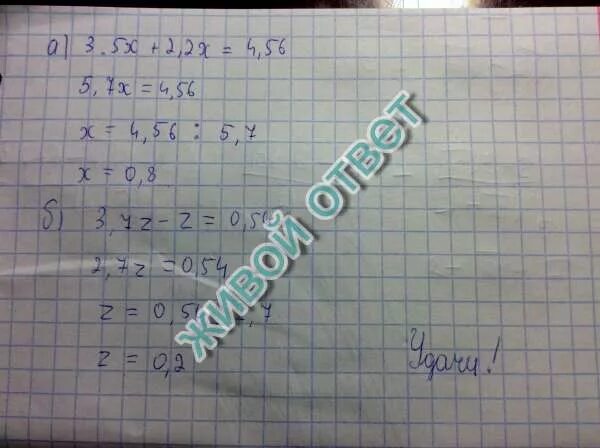 а) 3.5x + 2,2x = 4,56
5,7x = 4,56
x = 4,56 : 5,7
x = 0,8
б) 3,7z - z = 0,5
2,7z = 0,54
z = 0,5 ,7
z = 0,2
Удачи!
ЖИВОЙ ОТВЕТ